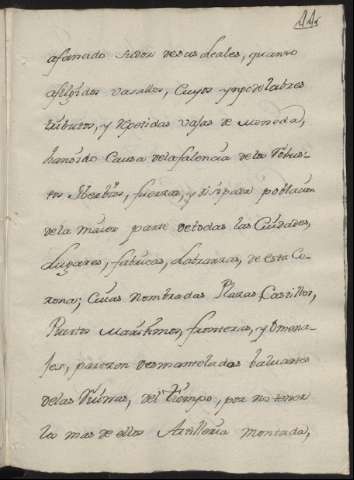 afanado sudor de sus leales, quanto
aflixidos vasallos, Cuyos ynpoderables
tributos, y repetidas vajas de Moneda,
han sido Causa de la falencia de los robus-
tos Nerbios, fuerzas, y poblacion
de la maior parte de todas las Ciudades,
Lugares, fabricas, Labranzas, de esta Co-
rona; Cuias Nombradas Plazas, Castillos,
Puertos Maritimos, fronteras, y Omena-
jes, parezen desmantelados baluartes
de las Ruinas, del tiempo, por no tener
los mas de ellos Artilleria montada,